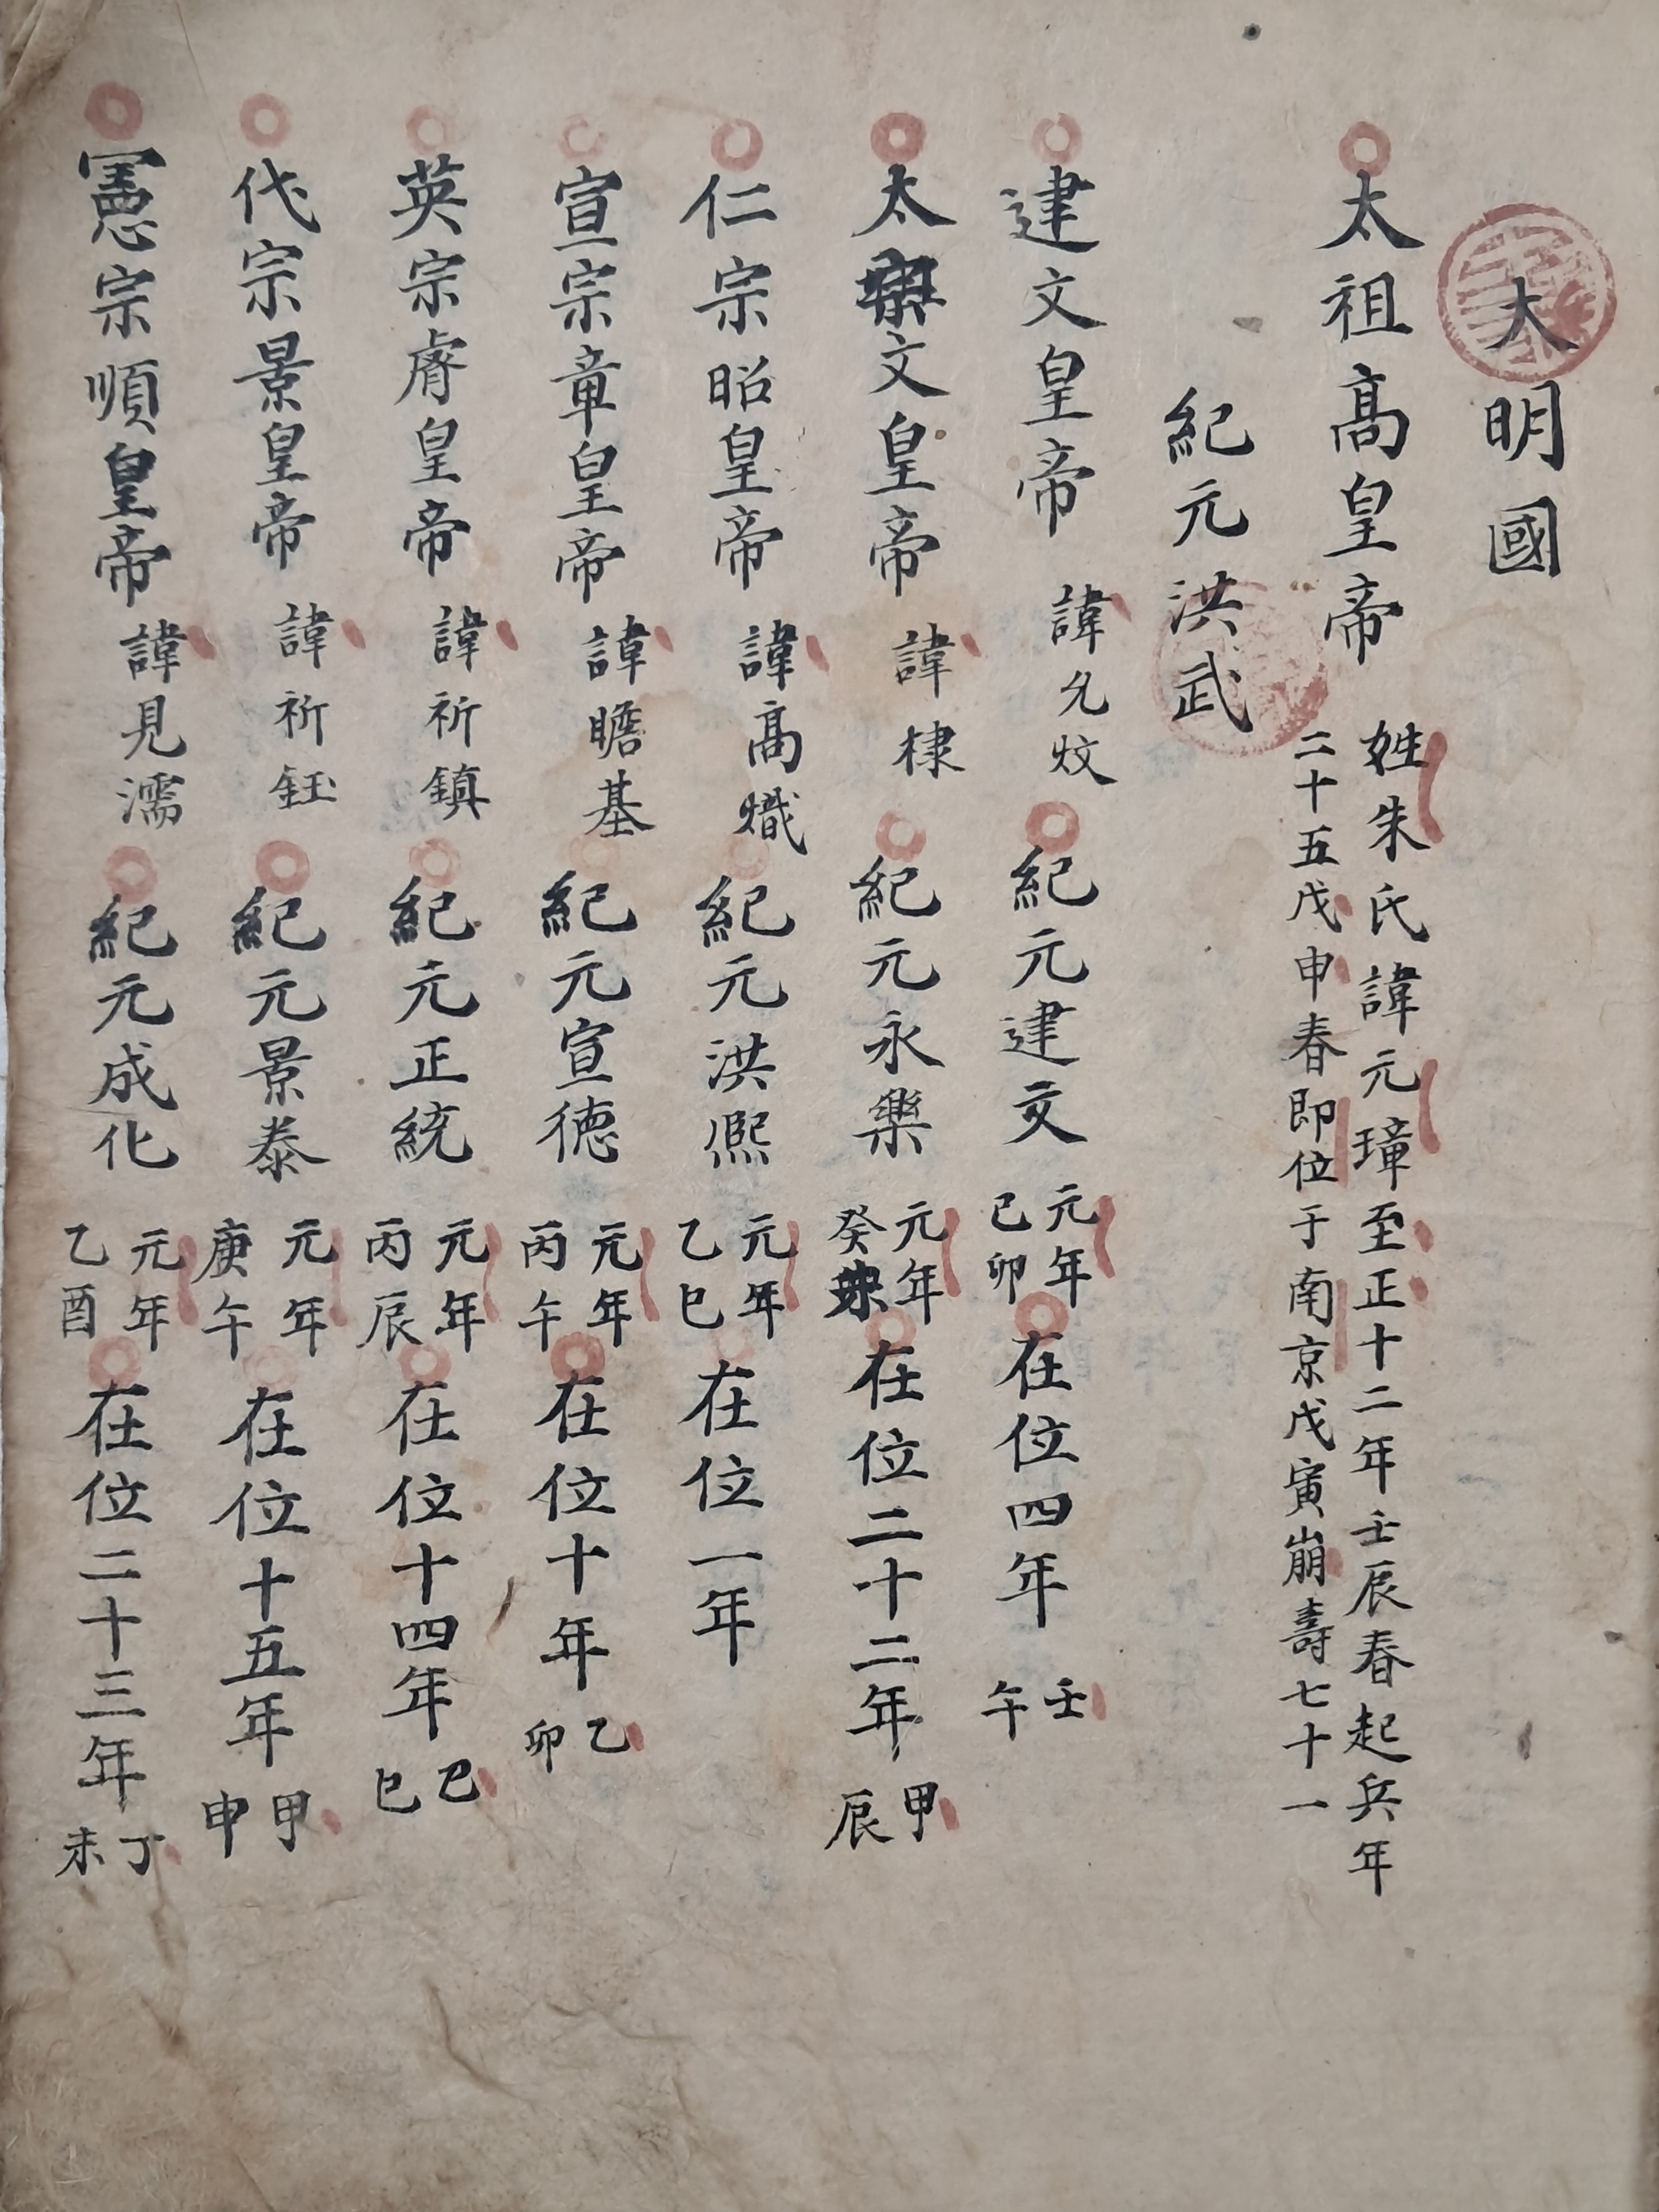 大明國
太祖高皇帝 姓朱氏諱元璋至正十二年壬辰春起兵年
二十五戊申春即位于南京戊寅崩壽七十一
紀元洪武
建文皇帝 諱允炆 紀元建文 元年己卯 在位四年 壬午
太宗文皇帝 諱棣 紀元永樂 元年癸未 在位二十二年 甲辰
仁宗昭皇帝 諱高熾 紀元洪熙 元年乙巳 在位一年
宣宗章皇帝 諱瞻基 紀元宣德 元年丙午 在位十年 乙卯
英宗睿皇帝 諱祈鎮 紀元正統 元年丙辰 在位十四年 己巳
代宗景皇帝 諱祈鈺 紀元景泰 元年庚午 在位十五年 甲申
憲宗順皇帝 諱見濡 紀元成化 元年乙酉 在位二十三年 丁未